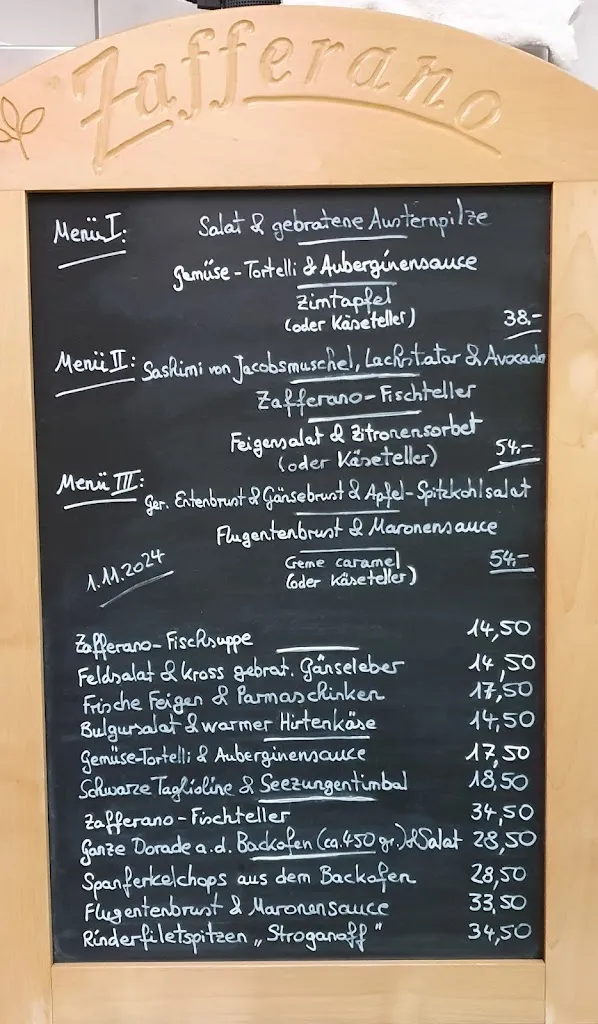 Zafferano
Menü I: Salat & gebratene Austernpilze
Gemüse-Tortelli & Auberginensauce
Zimtapfel
(oder Käseteller) 38.-
Menü II: Sashimi von Jacobsmuschel, Lachstatar & Avocado
Zafferano-Fischteller
Feigensalat & Zitronensorbet
(oder Käseteller) 54.-
Menü III: Ger. Entenbrust & Gänsebrust & Apfel-Spitzkohlsalat
Flugentenbrust & Maronensauce
Creme caramel 54.-
(oder Käseteller)
1.11.2024
Zafferano-Fischsuppe 14,50
Feldsalat & kross gebrat. Gänseleber 14,50
Frische Feigen & Parmaschinken 17,50
Bulgursalat & warmer Hirtenkäse 14,50
Gemüse-Tortelli & Auberginensauce 17,50
Schwarze Taglioline & Seezungentimbal 18,50
Zafferano-Fischteller 34,50
Ganze Dorade a.d. Backofen (ca. 450 gr.) & Salat 28,50
Spanferkelchops aus dem Backofen 28,50
Flugentenbrust & Maronensauce 33,50
Rinderfiletspitzen „Stroganaff" 34,50